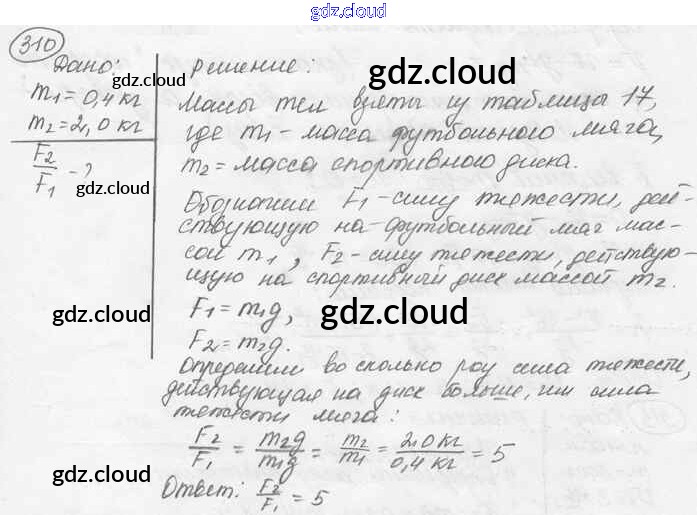 gdz.cloud
310
Дано:
m₁ = 0,4 кг
m₂ = 2,0 кг
F₂/F₁ - ?
gdz.cloud
Решение:
gdz.cloud
Массы тел взяты из таблицы 17,
где m₁ - масса футбольного мяча,
m₂ = масса спортивного диска.
Обозначим F₁ - силу тяжести, дей-
ствующую на футбольный мяч мас-
сой m₁, F₂ - силу тяжести, действую-
щую на спортивный диск массой m₂.
F₁ = m₁g,
F₂ = m₂g.
gdz.cloud
gdz.cloud
Определим во сколько раз сила тяжести,
действующая на диск больше, чем сила
тяжести мяча:
F₂/F₁ = m₂g/m₁g = m₂/m₁ = 2,0 кг/0,4 кг = 5
Ответ: F₂/F₁ = 5
gdz.cloud
gdz.cloud
gdz.cloud